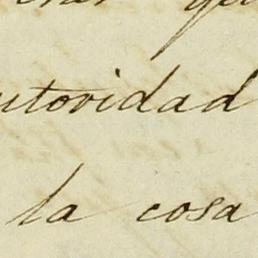 utoridad
la cosa